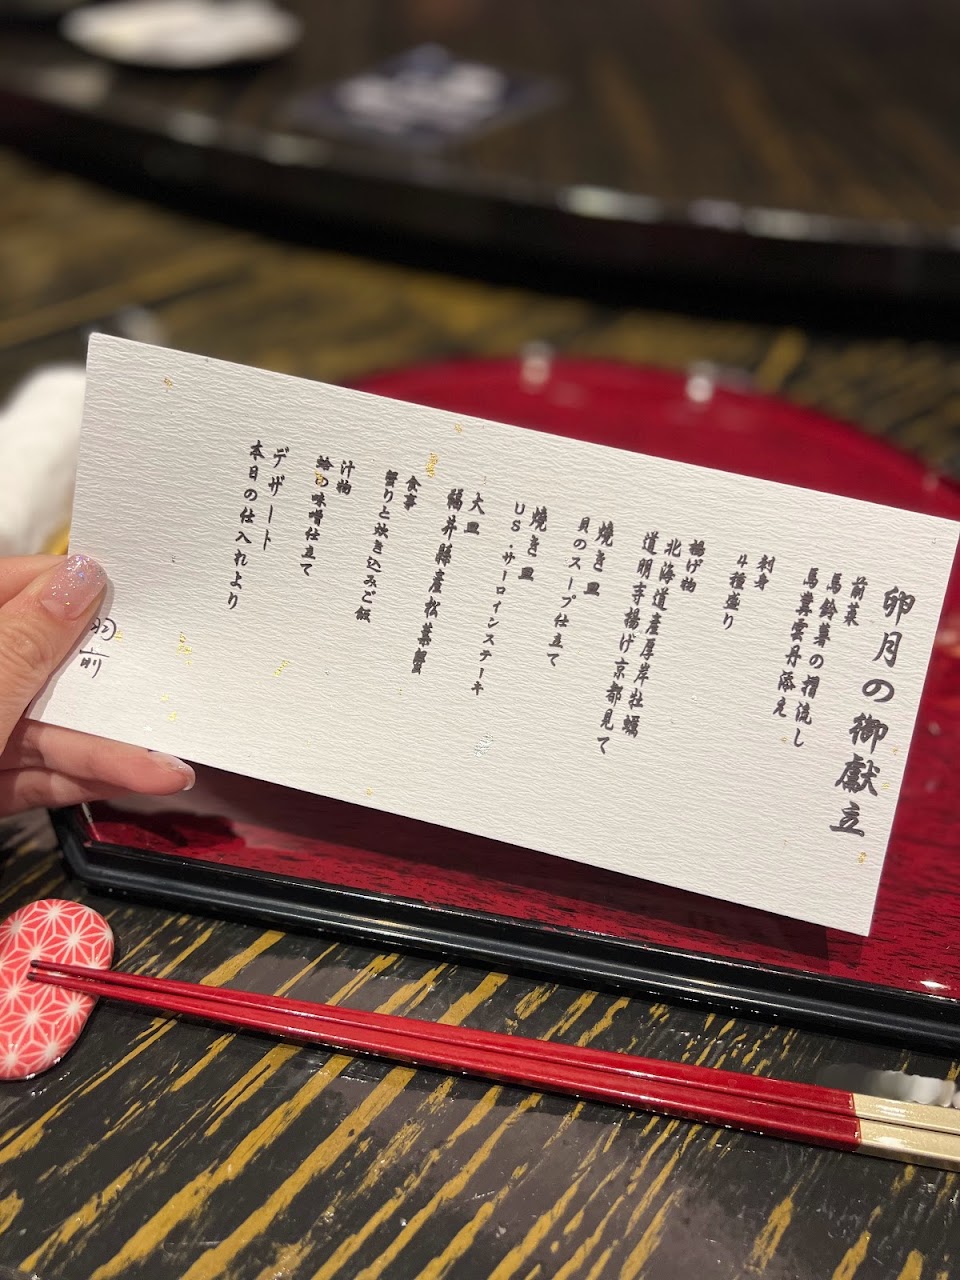 卯月の御献立
前菜
馬鈴薯の摺流し
馬糞雲丹添え
刺身
4種盛り
揚げ物
北海道産厚岸牡蠣
道明寺揚げ京都見て
焼き皿
貝のスープ仕立て
焼き皿
US・サーロインステーキ
大皿
福井縣産松葉蟹
食事
蟹りと炊き込みご飯
汁物
蛤の味噌仕立て
デザート
本日の仕入れより
羽前